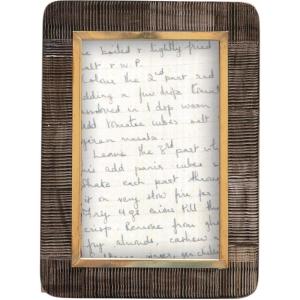 be boiled & lightly fried
salt & W.P.
Colour the 2nd part and
adding a few drops tomat
dissolved in 1 dsp warm
add tomatoe cubes salt
green masala.
Leave the 3rd part wh
add panir cubes
Shake each part throu
it on very slow fire for
Fry 4 gr onions till th
crisp. Remove from
fry almonds, cashew